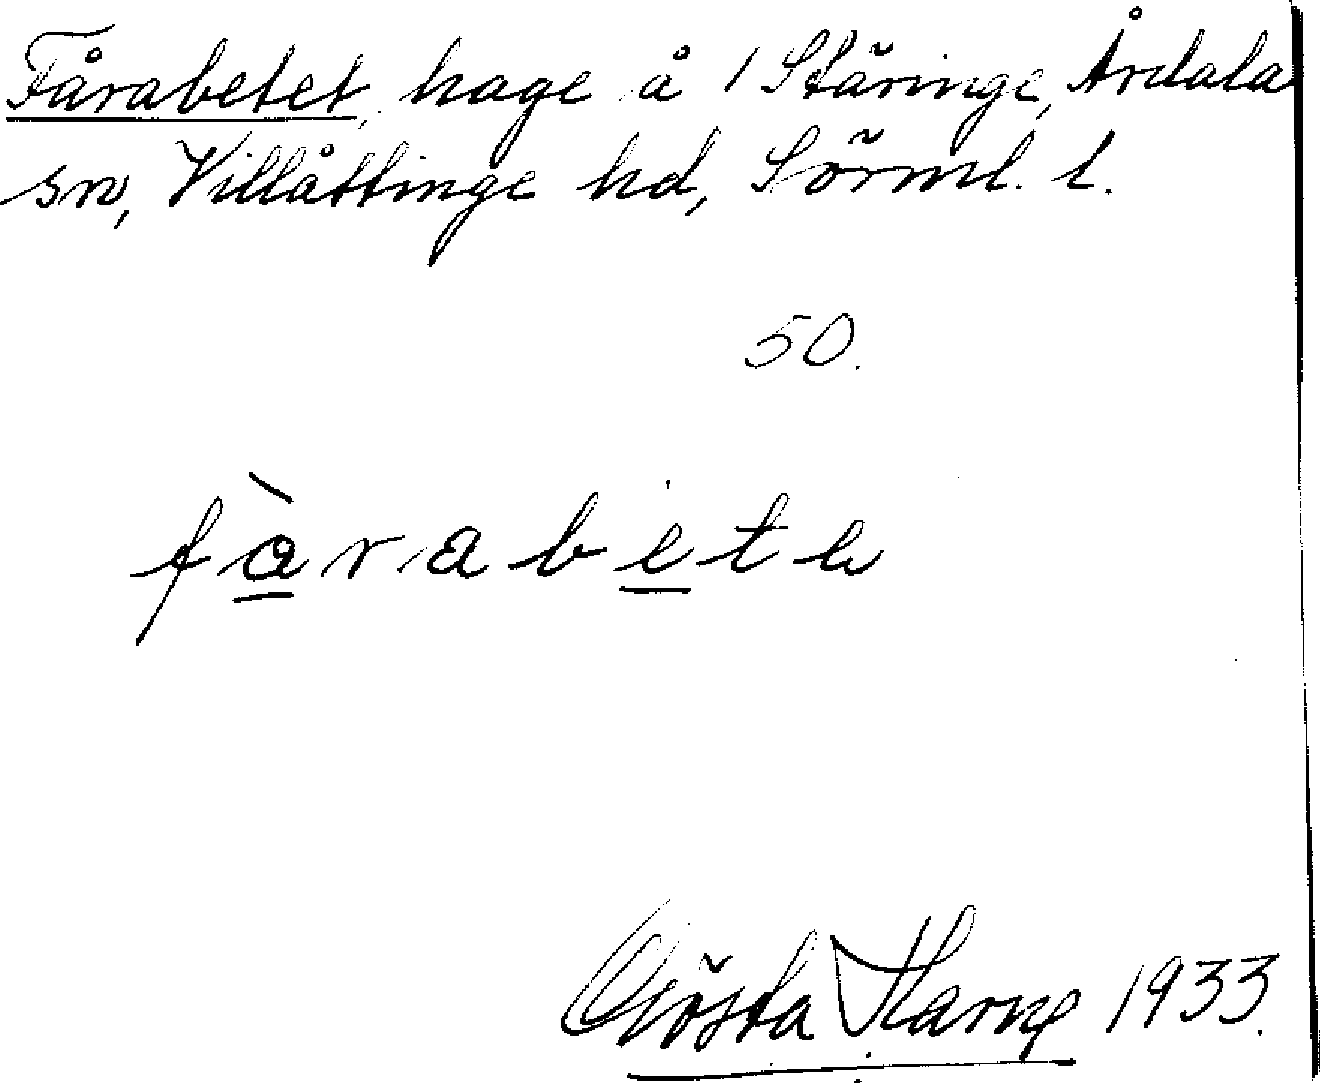 Fårabetet, hage å 1 Stäringe, Årdala
sn, Villåttinge hd, Sörml. l.
50.
fàrabete
Gösta 1933.